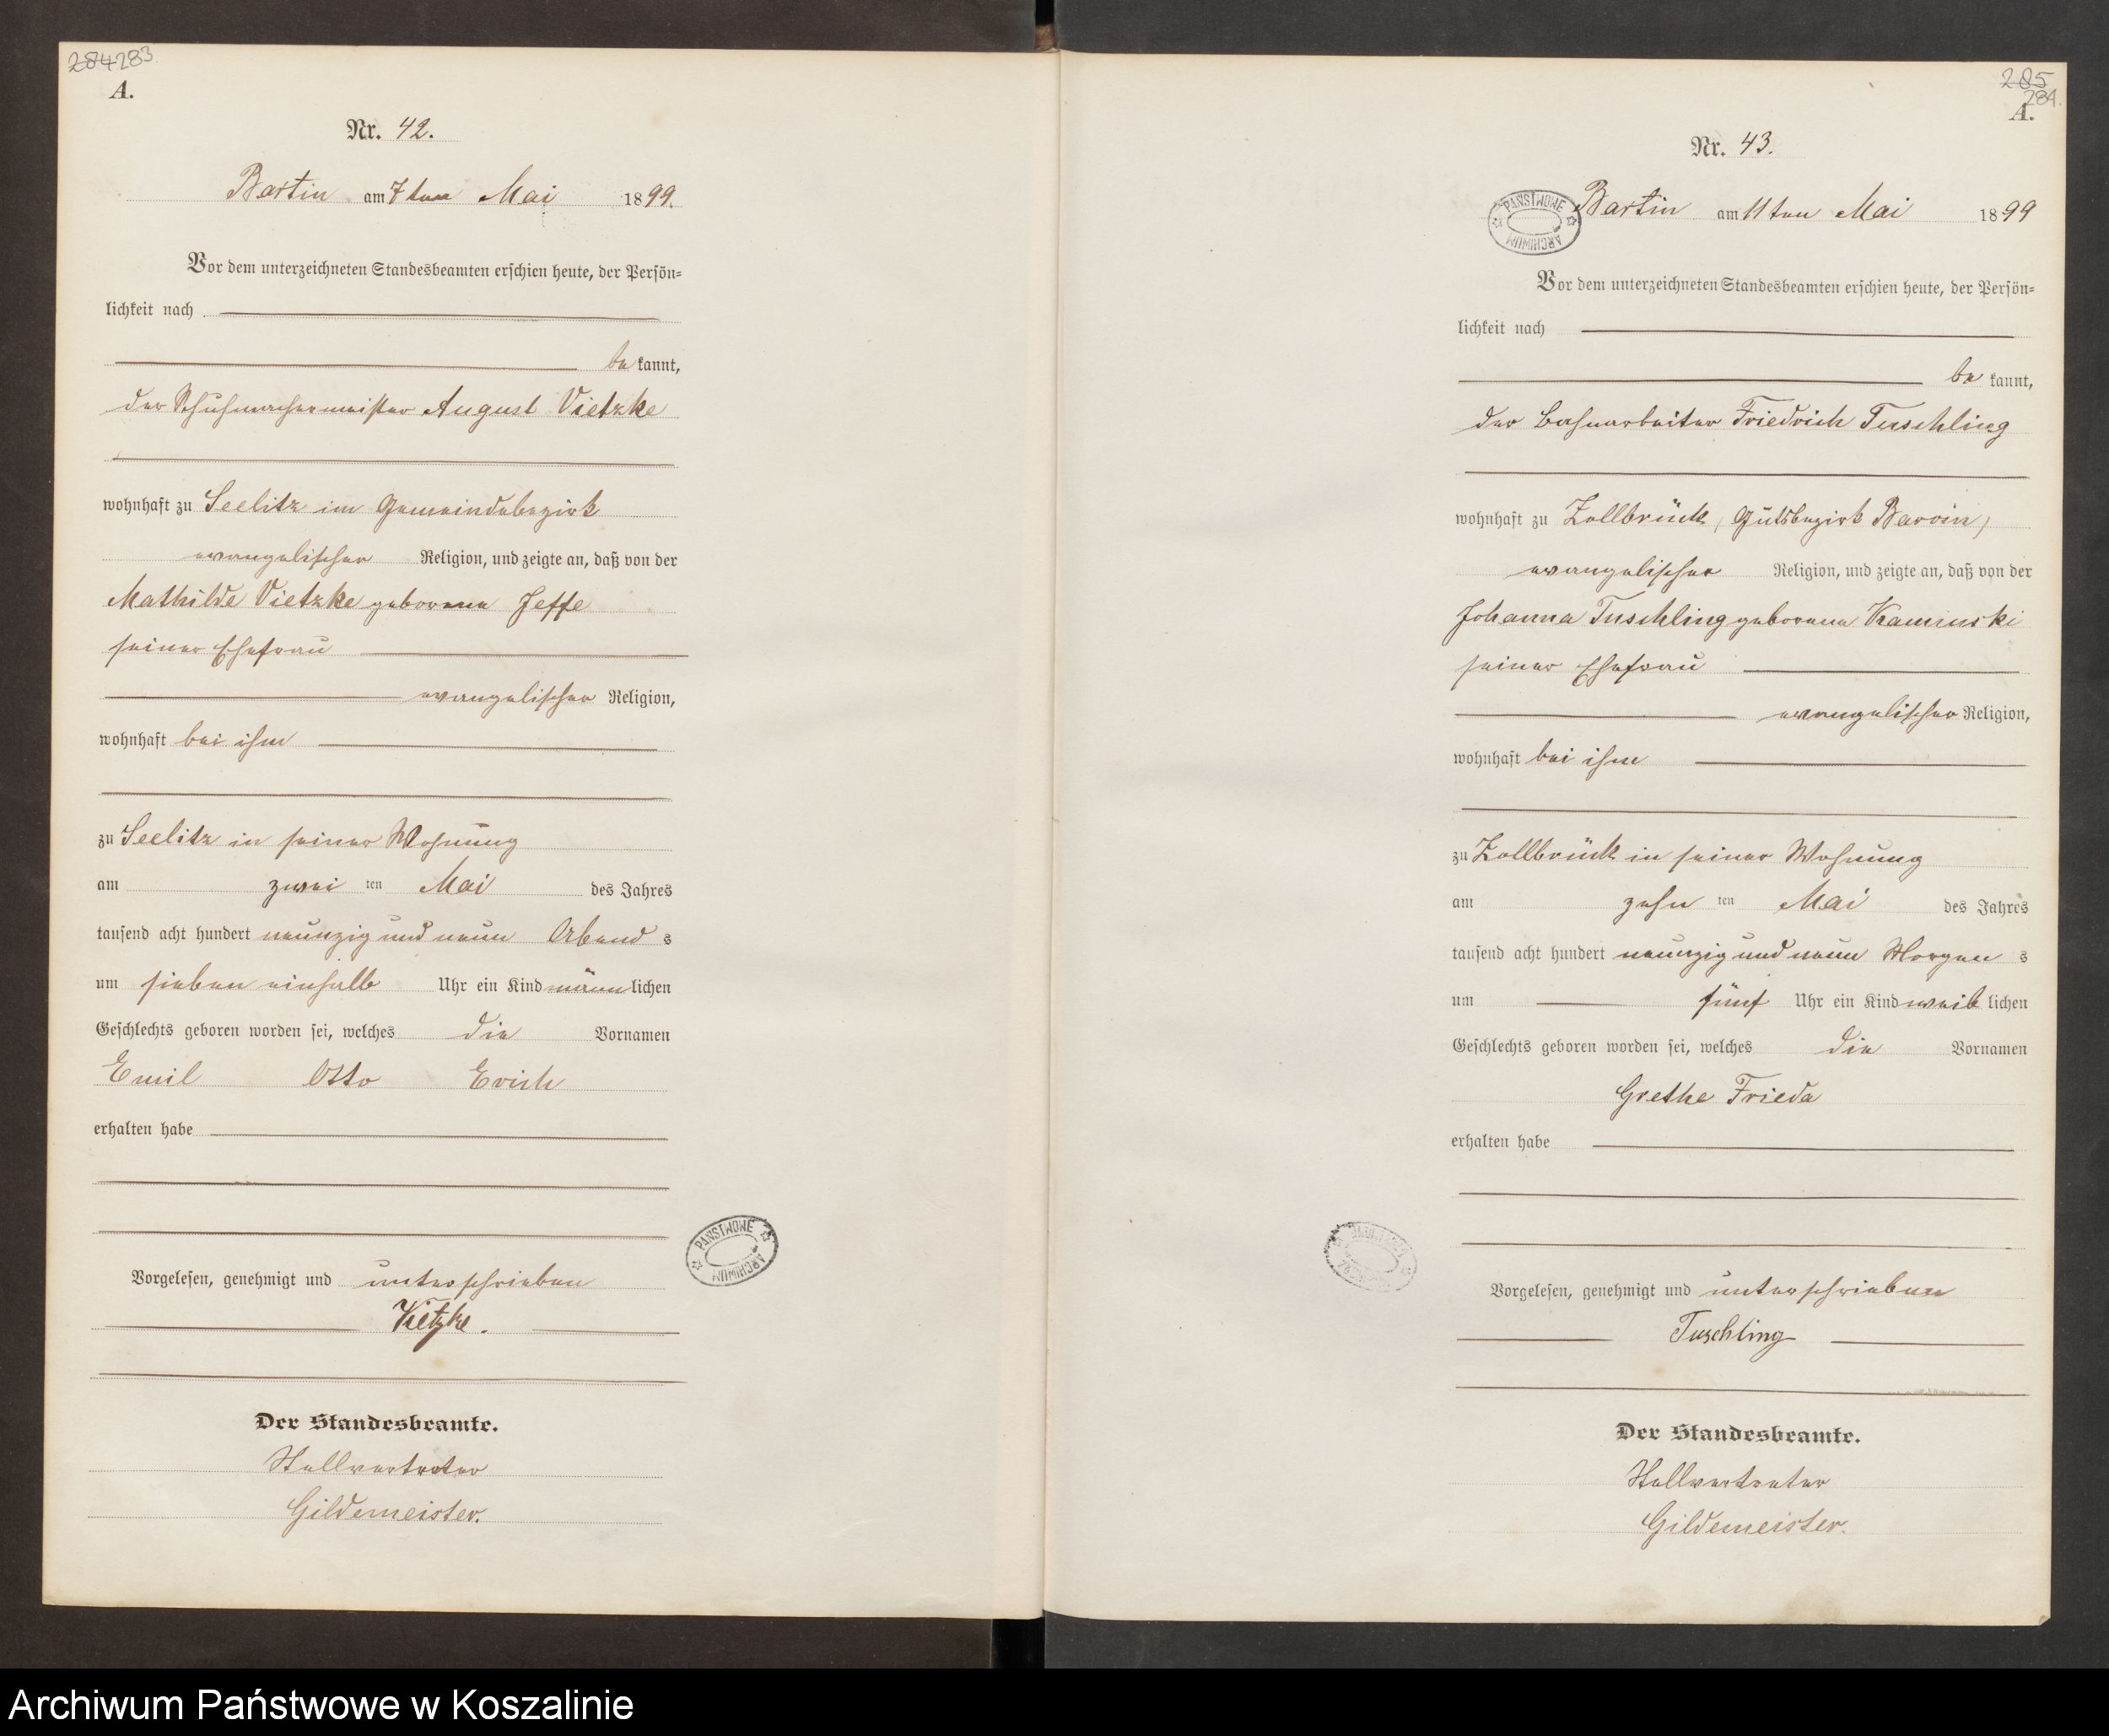 284 283.
A.
Nr. 42.
Bartin am 7ten Mai 1899.
Vor dem unterzeichneten Standesbeamten erschien heute, der Persön=
lichkeit nach
be kannt,
der Schuhmachermeister August Vietzke
wohnhaft zu Seelitz im Gemeindebezirk
evangelischer Religion, und zeigte an, daß von der
Mathilde Vietzke geborene Jeffe
seiner Ehefrau
evangelischer Religion,
wohnhaft bei ihm
zu Seelitz in seiner Wohnung
am zwei ten Mai des Jahres
tausend acht hundert neunzig und neun Abend s
um sieben einhalb Uhr ein Kind männ lichen
Geschlechts geboren worden sei, welches die Vornamen
Emil Otto Erich
erhalten habe
Vorgelesen, genehmigt und unterschrieben
Vietzke.
Der Standesbeamte.
Stellvertreter
Gildemeister.
PAŃSTWOWE ARCHIWUM
285
284.
A.
Nr. 43.
PAŃSTWOWE ARCHIWUM
Bartin am 11ten Mai 1899
Vor dem unterzeichneten Standesbeamten erschien heute, der Persön=
lichkeit nach
be kannt,
der Bahnarbeiter Friedrich Tuschling
wohnhaft zu Zollbrück, (Gutsbezirk Barvin)
evangelischer Religion, und zeigte an, daß von der
Johanna Tuschling geborene Kaminski
seiner Ehefrau
evangelischer Religion,
wohnhaft bei ihm
zu Zollbrück in seiner Wohnung
am zehn ten Mai des Jahres
tausend acht hundert neunzig und neun Morgen s
um fünf Uhr ein Kind weib lichen
Geschlechts geboren worden sei, welches die Vornamen
Grethe Frieda
erhalten habe
Vorgelesen, genehmigt und unterschrieben
Tuschling
Der Standesbeamte.
Stellvertreter
Gildemeister.
Archiwum Państwowe w Koszalinie